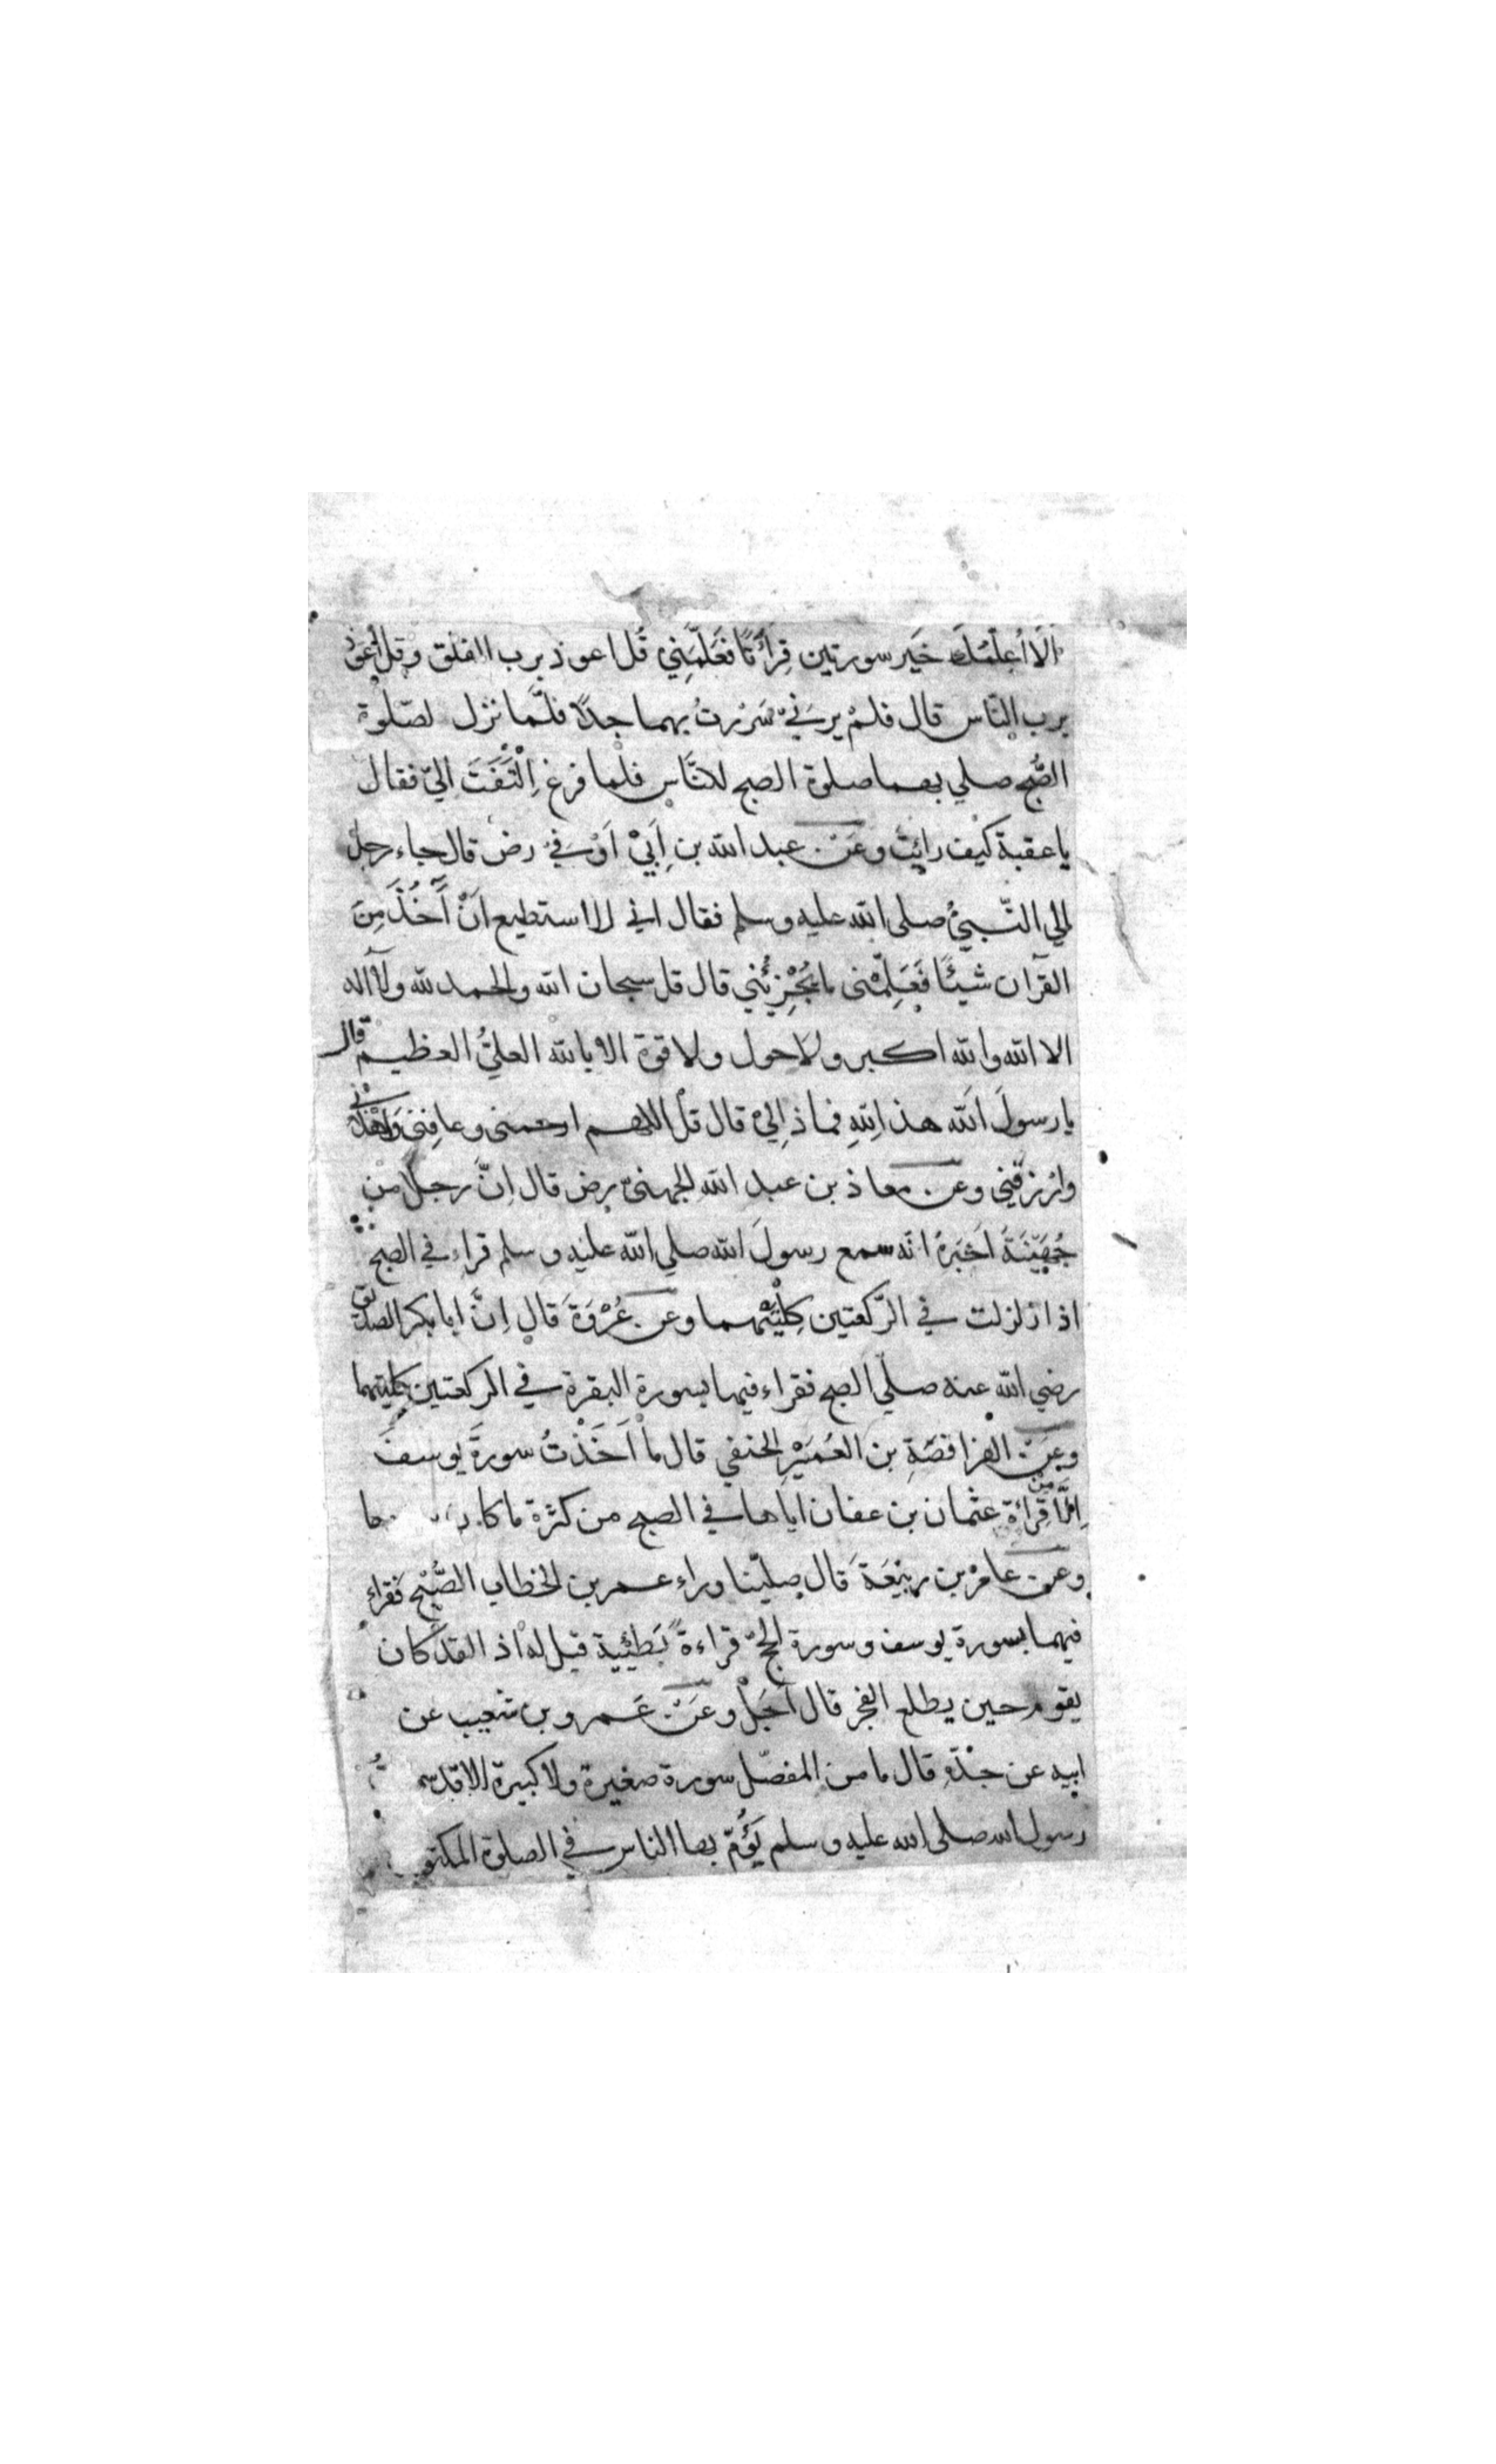 الَا أُعلّمُكَ خَير سورتين قِرأَتَا فعَلَّمَنِي قُل اعوذ برب الفلق وقل أعوذ
برب الناس قال فلمْ يرَنيْ سَُررتُ بهما جدًا فلمَّا نزل لصَلوٰة
الصُّبح صلي بهما صلوة الصبح للنَّاس فلما فرغ اِلْتَفَتَ اليّ فقال
يا عقبة كيف رايت وعَنْ عبد الله بنِ اَبيْ اَوْفيَ رض قال جاء رجل
الي النّبيُ صلي الله عليه وسلم فقال اني لا استطيع انْ آخُذَ مِنَ
القرآن شيئًا فَعَلِّمْنى ما يُجْزِئُني قال قل سبحان الله والحمد لله ولآ اله
الا الله والله اكبر ولاحول ولا قوة الا بالله العليُّ العظيم قال
يا رسولَ الله هذا لِلّهِ فماذا لِي قال قل اللهم ارحمنى وعافِنى وَاهْدِنِي
وارْزقني وعن معاذ بن عبد الله الجهنيّ رض قال اِنَّ رجلا من
جُهَيْنَةَ اَخبَرهُ انّه سمع رسولَ الله صلي الله عليه وسلم قراء في الصبح
اذا زلزلت في الرّكعتين كِلْتَيْهما وعن عُرْوَةَ قال اِنَّ ابا بكر الصديق
رضي الله عنه صلّي الصبح فقراء فيهما بسورة البقرة في الركعتين كليتهما
وعَنْ الفرافصَةِ بن العُمَيْرِ الحنفي قال ما اَخَذْتُ سورةَ يوسفَ
اِلَّا مِنْ قِرَاءَةِ عثمان بن عفان اياها في الصبح من كثرة ما كا
وعن عامرْ بن ربيْعَةَ قال صليّنا وراء عمر بن الخطاب الصُّبْحَ فقراء
فيهما بسورة يوسف وسورة الحجّ قراءةً بَطيْئِية قيل له اذ القد كان
يقوم حين يطلع الفجر قال اَجَلْ وعَنْ عَمرو بن شعيب عن
ابيه عن جدّهِ قال ما من المفصّل سورة صغيرة ولا كبيرة الا قد سمعتُ
رسول الله صلى الله عليه وسلم يَؤُمّ بها الناس في الصلوة المكتوبة